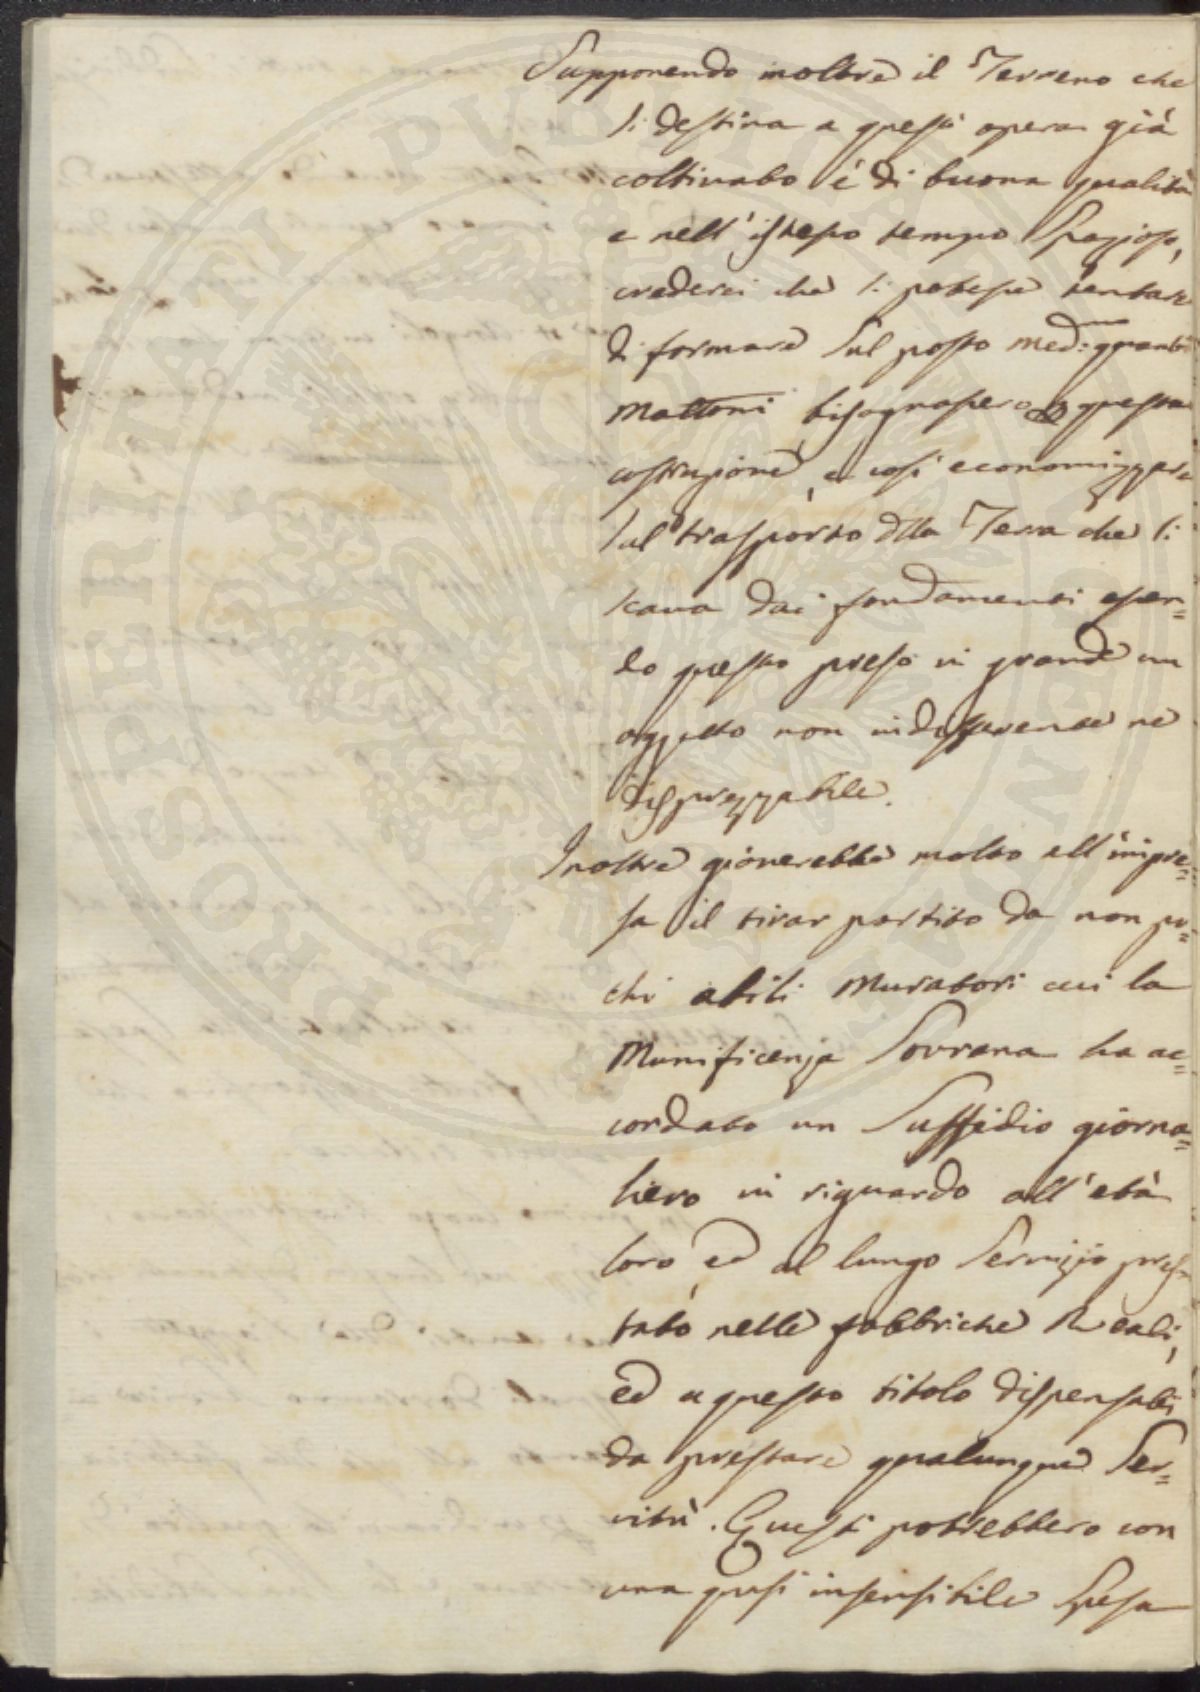 Supponendo inoltre il Terreno che
si destina a quest' opera già
coltivato è di buona qualità
e nell' istesso tempo spazioso,
crederei che si potesse tentare
di formare sul posto med: quanti
Mattoni bisognassero a questa
costruzione, e così economizzare
sul trasporto dlla Terra che si
scava dai fondamenti essen=
do questo preso in grande un
oggetto non indifferente ne
disprezzabile.
Inoltre gioverebbe molto all' impre=
sa il tirar partito da non po=
chi abili Muratori cui la
Munificenza Sovrana ha ac=
cordato un Sussidio giorna=
liero in riguardo all' età
loro ed al lungo Servizio pres
tato nelle fabbriche Reali,
ed a questo titolo dispensati
da prestare qualunque Ser=
vitù. Questi potrebbero con
una quasi insensibile Spesa
PROSPERITATI PUBLICAE